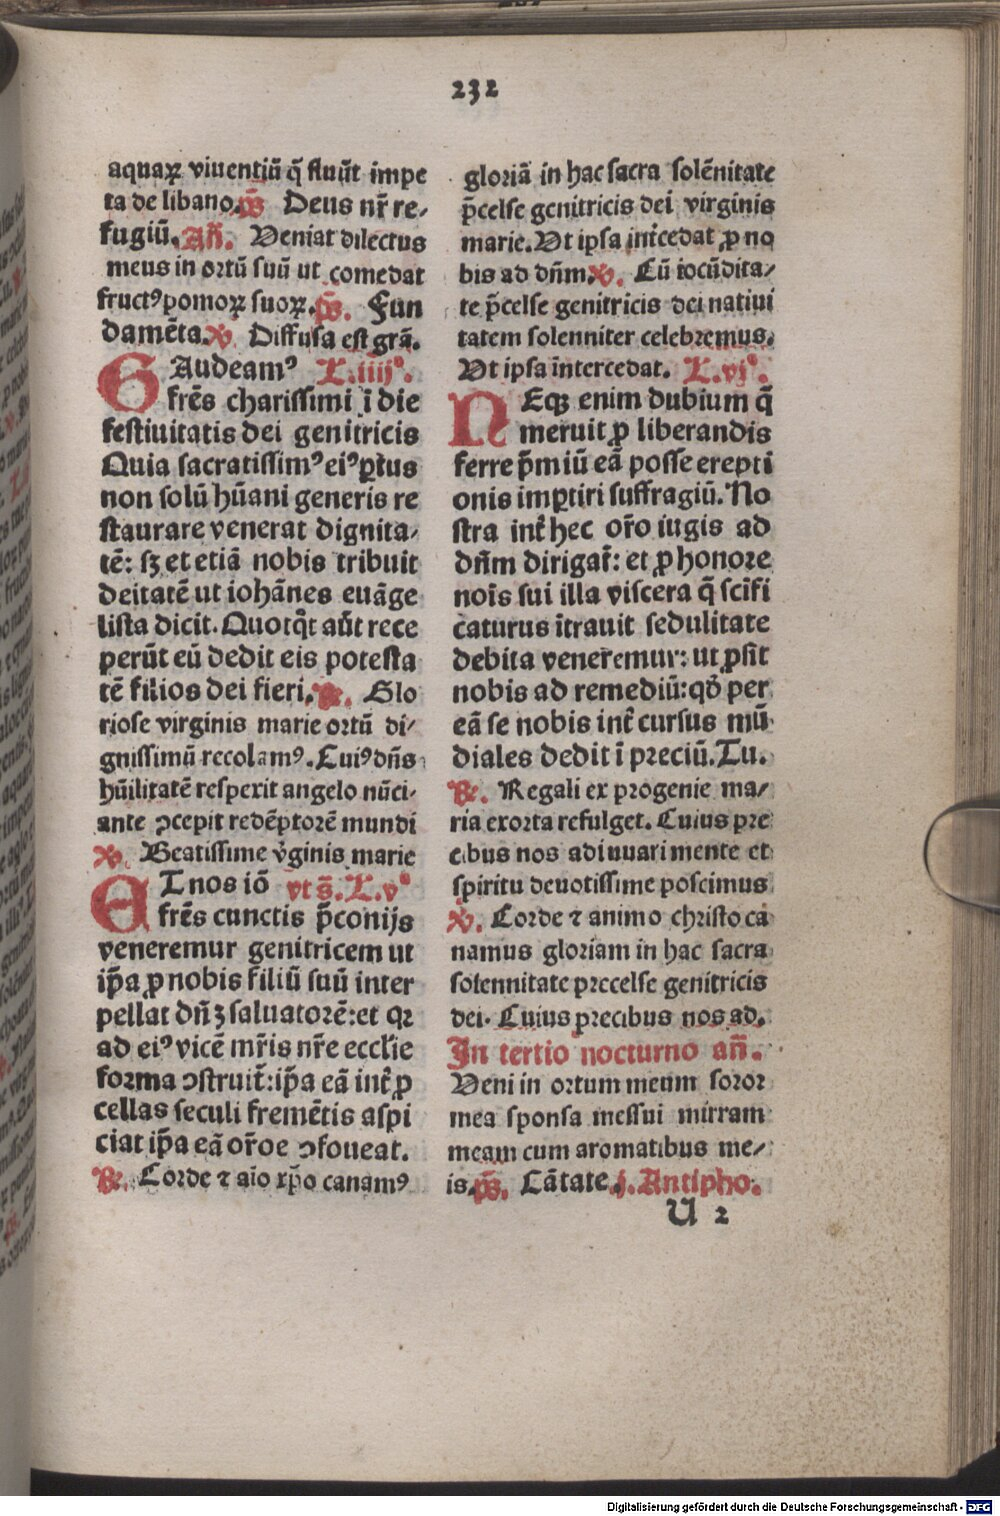 232
aquaꝝ viuentiū q̄ fluūt impe
ta de libano. p̄s Deus nr̄ re⸗
fugiū. Añ. Veniat dilectus
meus in ortū suū ut comedat
fructꝰ pomoꝝ suoꝝ. p̄s. Fun
damēta. ℣ Diffusa est grā.
GAudeamꝰ L. iiijº.
frēs charissimi ī die
festiuitatis dei genitricis
Quia sacratissimꝰ eiꝰ ꝑtus
non solū hūani generis re
staurare venerat dignita⸗
tē: sꝫ et etiā nobis tribuit
deitatē ut iohānes euāge
lista dicit. Quotqͥt aūt rece
perūt eū dedit eis potesta
tē filios dei fieri. ℟. Glo
riose virginis marie ortū di⸗
gnissimū recolamꝰ. Cuiꝰ dn̄s
hūilitatē respexit angelo nūci⸗
ante ꝯcepit redēptorē mundi
℣ Beatissime v̓ginis marie
ET nos iō vt s̄. L. vº
frēs cunctis p̄conijs
veneremur genitricem ut
ip̄a ꝓ nobis filiū suū inter
pellat dn̄ꝫ saluatorē: et qꝛ
ad eiꝰ vicē mr̄is nr̄e eccl̓ie
forma ꝯstruit̄: ip̄a eā int̄ ꝓ
cellas seculi fremētis aspi
ciat ip̄a eā or̄oe ꝯfoueat.
℟. Corde ⁊ aīo xp̄o canamꝰ
gloriā in hac sacra solēnitate
p̄celse genitricis dei virginis
marie. Vt ipsa int̄cedat ꝓ no
bis ad dn̄m. ℣. Cū iocūdita⸗
te p̄celse genitricis dei natiui
tatem solenniter celebremus.
Vt ipsa intercedat. L. vjº.
NEqꝫ enim dubium q̄
meruit ꝓ liberandis
ferre p̄miū eā posse erepti
onis imꝑtiri suffragiū. No
stra int̄ hec or̄o iugis ad
dn̄m dirigat̄: et ꝓ honore
nōis sui illa viscera q̄ scīfi
caturus ītrauit sedulitate
debita veneremur: ut ꝓsit
nobis ad remediū: qđ per
eā se nobis int̄ cursus mū
diales dedit ī preciū. Tu.
℟. Regali ex progenie ma⸗
ria exorta refulget. Cuius pre
cibus nos adiuuari mente et
spiritu deuotissime poscimus
℣. Corde ⁊ animo christo ca
namus gloriam in hac sacra
solennitate precelse genitricis
dei. Cuius precibus nos ad.
In tertio nocturno añ.
Veni in ortum meum soror
mea sponsa messui mirram
meam cum aromatibus me⸗
is. p̄s. Cātate. j. Antipho.
U 2
Digitalisierung gefördert durch die Deutsche Forschungsgemeinschaft - DFG